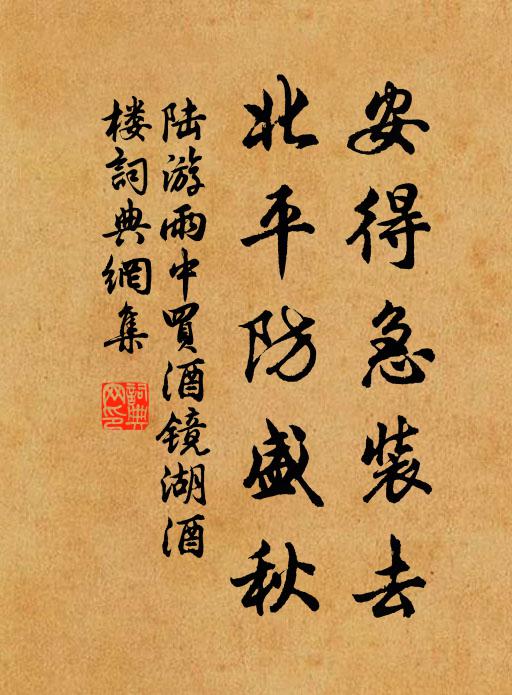 安得急装去
北平防盛秋
陆游雨中買酒镜湖酒
楼詞典網集
詞典网印